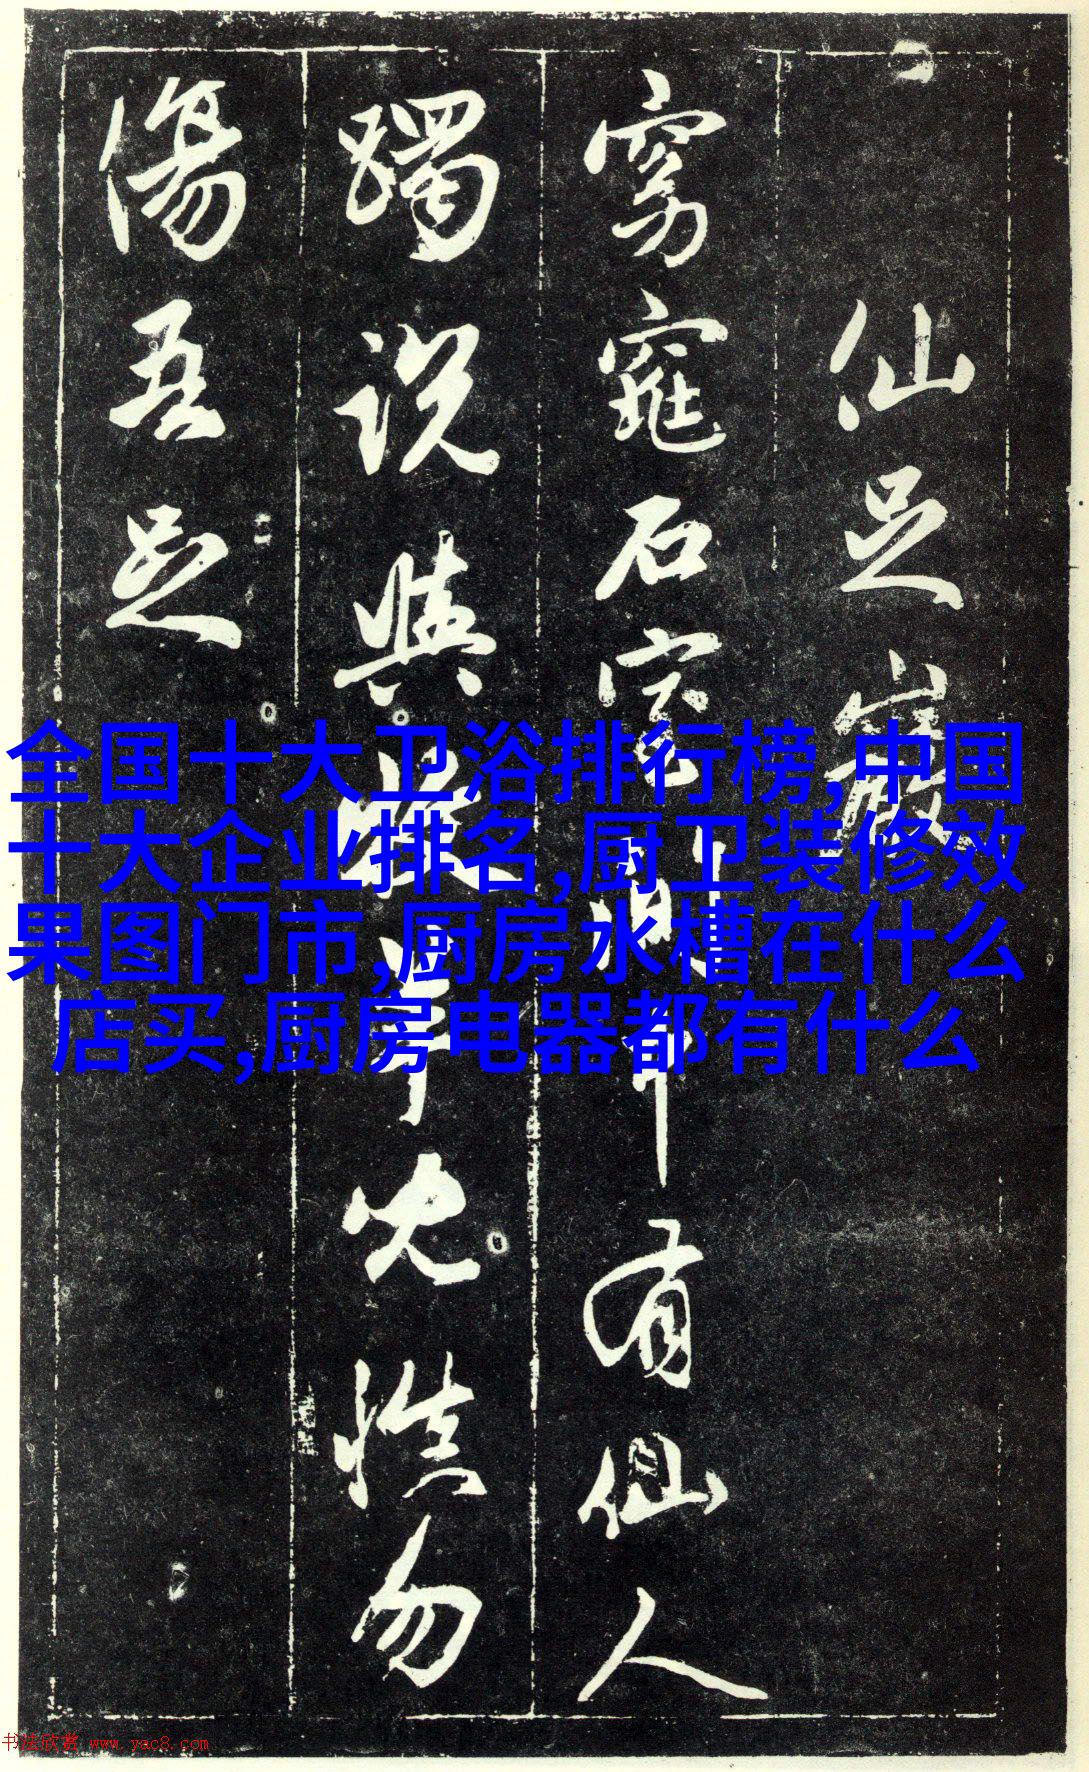 仙足巖
窈窕石室 有仙人
躅說與 兒慎勿
傷吾足
全国十大卫浴排行榜,中国
十大企业排名,厨卫装修效
果图门市,厨房水槽在什么
店买,厨房电器都有什么
书法欣赏 www.yac8.com